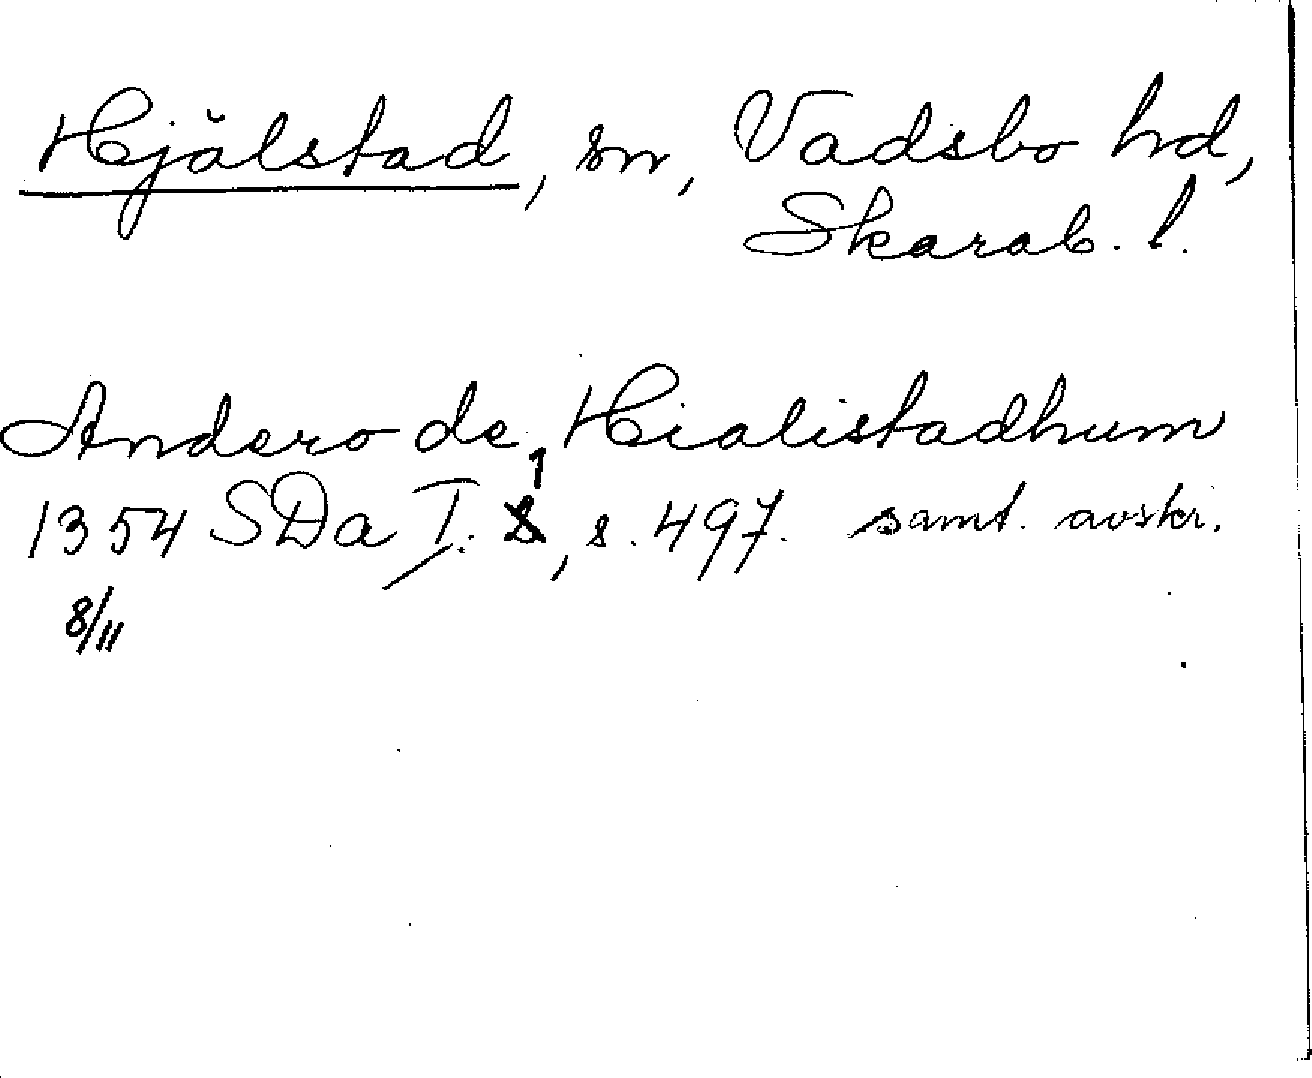 Hjälstad, sn, Vadsbo hd,
Skarab. l.
Andero de Hialistadhum
1354 SDa I: 1, s. 497. samt. avskr.
8/11